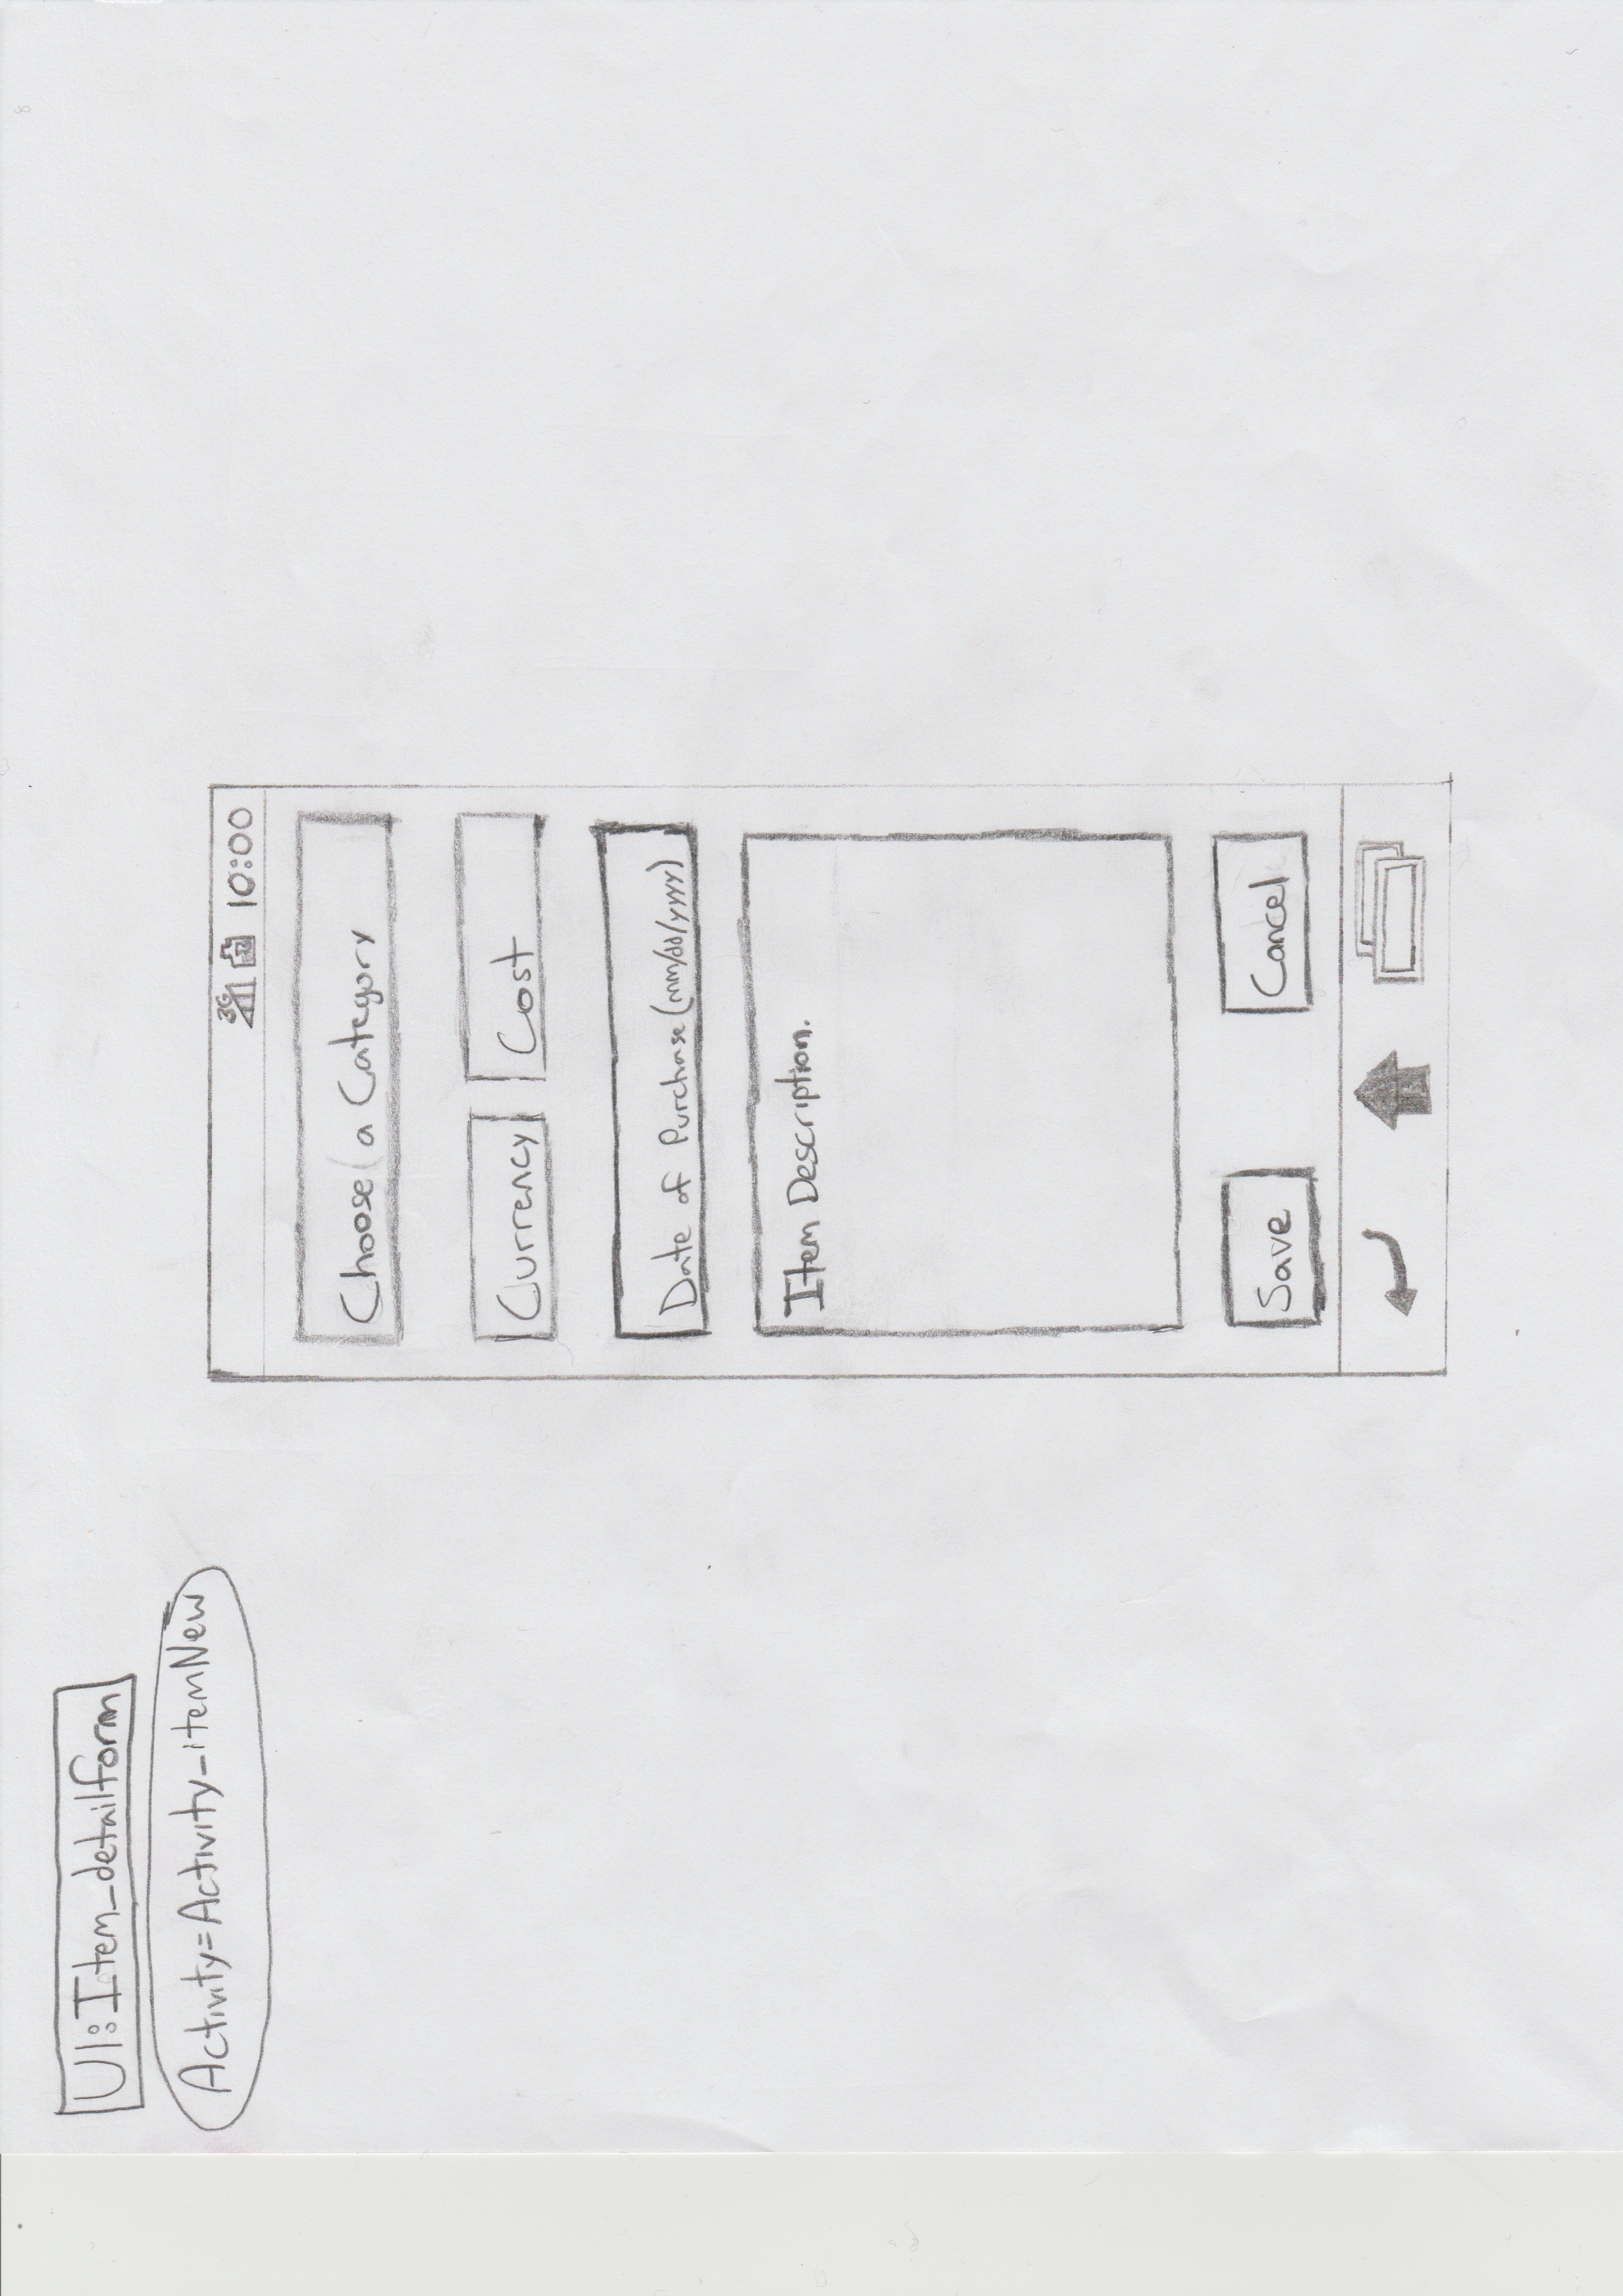 UI: Item_detailform
Activity=Activity_itemNew
3G 10:00
Choose a Category
Currency Cost
Date of Purchase (mm/dd/yyyy)
Item Description.
Save Cancel